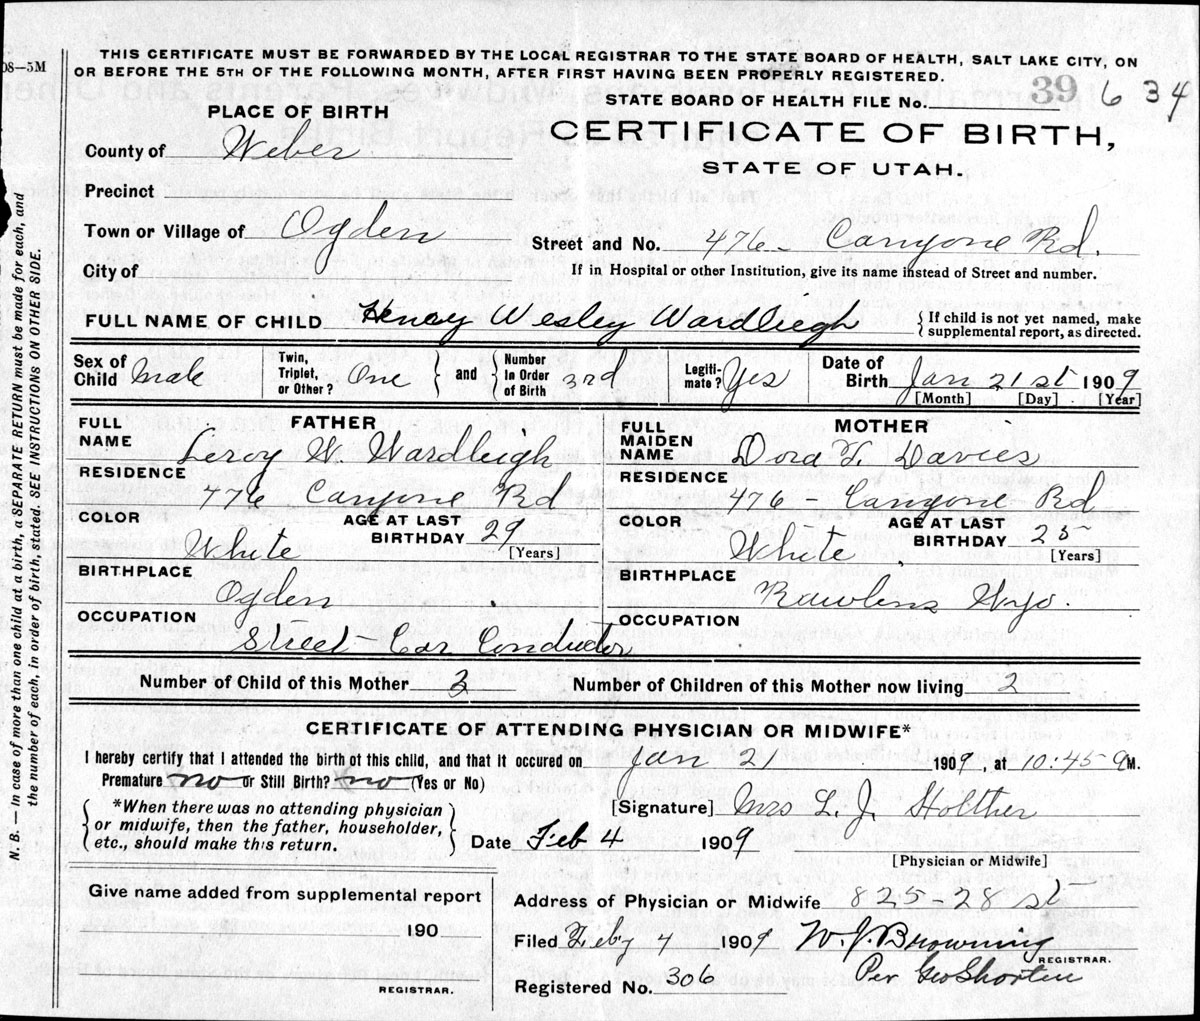 08—5M
THIS CERTIFICATE MUST BE FORWARDED BY THE LOCAL REGISTRAR TO THE STATE BOARD OF HEALTH, SALT LAKE CITY, ON
OR BEFORE THE 5TH OF THE FOLLOWING MONTH, AFTER FIRST HAVING BEEN PROPERLY REGISTERED.
STATE BOARD OF HEALTH FILE No. 39 634
PLACE OF BIRTH
CERTIFICATE OF BIRTH,
STATE OF UTAH.
County of Weber
Precinct
Town or Village of Ogden
Street and No. 476 - Canyone Rd.
City of
If in Hospital or other Institution, give its name instead of Street and number.
FULL NAME OF CHILD Henry Wesley Wardleigh
{ If child is not yet named, make
supplemental report, as directed.
Sex of Child Male
Twin, Triplet, or Other? One } and { Number In Order of Birth 3rd
Legiti-mate? Yes
Date of Birth Jan 21st 1909
[Month] [Day] [Year]
FATHER
FULL NAME Leroy W. Wardleigh
RESIDENCE 776 Canyone Rd
COLOR White
AGE AT LAST BIRTHDAY 29
[Years]
BIRTHPLACE Ogden
OCCUPATION Street Car Conductor
MOTHER
FULL MAIDEN NAME Dora Davies
RESIDENCE 476 - Canyone Rd
COLOR White
AGE AT LAST BIRTHDAY 25
[Years]
BIRTHPLACE Rawlens Wyo.
OCCUPATION
Number of Child of this Mother 3
Number of Children of this Mother now living 2
CERTIFICATE OF ATTENDING PHYSICIAN OR MIDWIFE*
I hereby certify that I attended the birth of this child, and that it occured on Jan 21 1909, at 10:45 M.
Premature no or Still Birth? no (Yes or No)
{ *When there was no attending physician
or midwife, then the father, householder,
etc., should make this return. }
[Signature] Mrs L. J. Holther
Date Feb 4 1909
[Physician or Midwife]
Give name added from supplemental report
190
REGISTRAR.
Address of Physician or Midwife 825-28 st
Filed Feby 4 1909 W. J. Browning
REGISTRAR.
Per Geo Shorten
Registered No. 306
N. B. — In case of more than one child at a birth, a SEPARATE RETURN must be made for each, and
the number of each, in order of birth, stated. SEE INSTRUCTIONS ON OTHER SIDE.